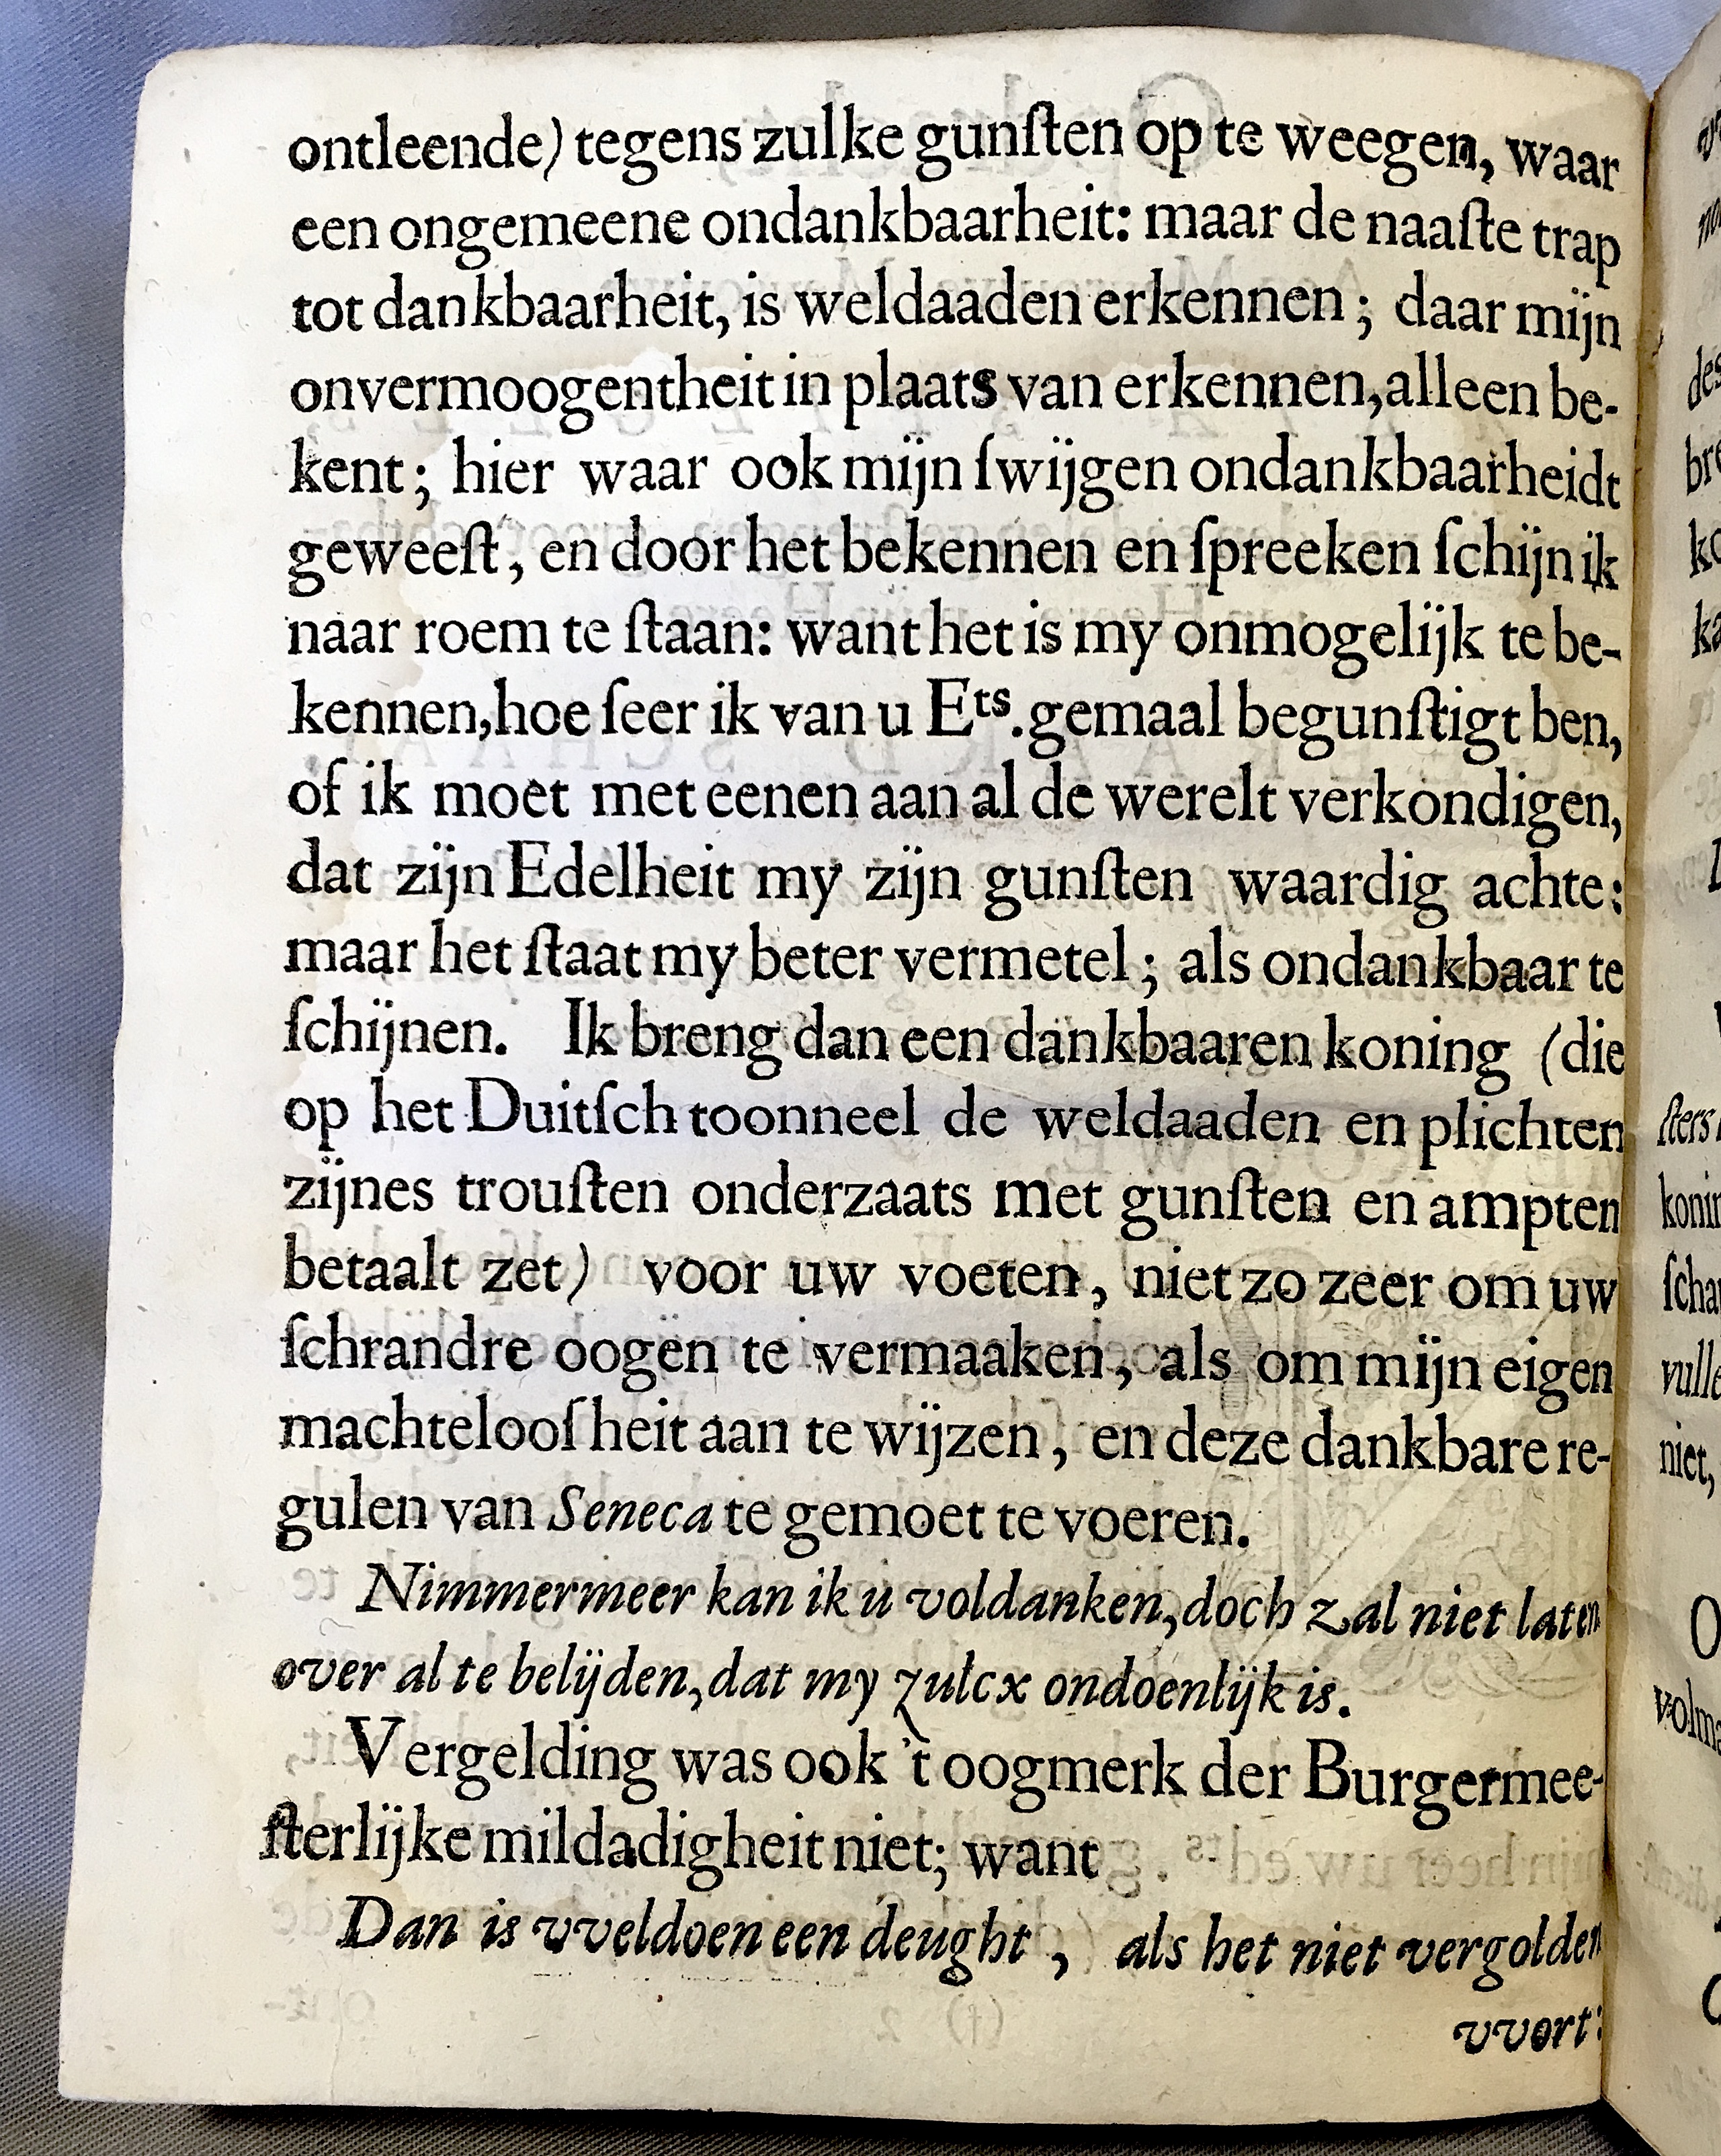 ontleende) tegens zulke gunſten op te weegen, waar
een ongemeene ondankbaarheit: maar de naaſte trap
tot dankbaarheit, is weldaaden erkennen; daar mijn
onvermoogentheit in plaats van erkennen, alleen be-
kent; hier waar ook mijn ſwijgen ondankbaarheidt
geweeſt, en door het bekennen en ſpreeken ſchijn ik
naar roem te ſtaan: want het is my onmogelijk te be-
kennen, hoe ſeer ik van u Eᵗˢ. gemaal begunſtigt ben,
of ik moet met eenen aan al de werelt verkondigen,
dat zijn Edelheit my zijn gunſten waardig achte:
maar het ſtaat my beter vermetel; als ondankbaar te
ſchijnen. Ik breng dan een dankbaaren koning (die
op het Duitſch toonneel de weldaaden en plichten
zijnes trouſten onderzaats met gunſten en ampten
betaalt zet) voor uw voeten, niet zo zeer om uw
ſchrandre oogen te vermaaken, als om mijn eigen
machtelooſheit aan te wijzen, en deze dankbare re-
gulen van Seneca te gemoet te voeren.
Nimmermeer kan ik u voldanken, doch zal niet laten
over al te belijden, dat my zulcx ondoenlijk is.
Vergelding was ook 't oogmerk der Burgermee-
ſterlijke mildadigheit niet; want
Dan is vveldoen een deught, als het niet vergolden
vvort: